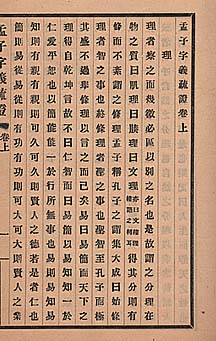 孟子字義疏證卷上
理
理者察之而幾微必區以別之名也是故謂之分理在
物之質曰肌理曰腠理曰文理亦曰文縷理縷語之轉耳得其分則有
條而不紊謂之條理孟子稱孔子之謂集大成曰始條
理者智之事也終條理者聖之事也聖智至孔子而極
其盛不過舉條理以言之而已矣易曰易簡而天下之
理得自乾坤言故不曰仁智而曰易簡以易知知一於
仁愛平恕也以簡能能一於行所無事也易則易知易
知則有親有親則可久可久則賢人之德若是者仁也
簡則易從易從則有功有功則可大可大則賢人之業
孟子字義疏證 卷上